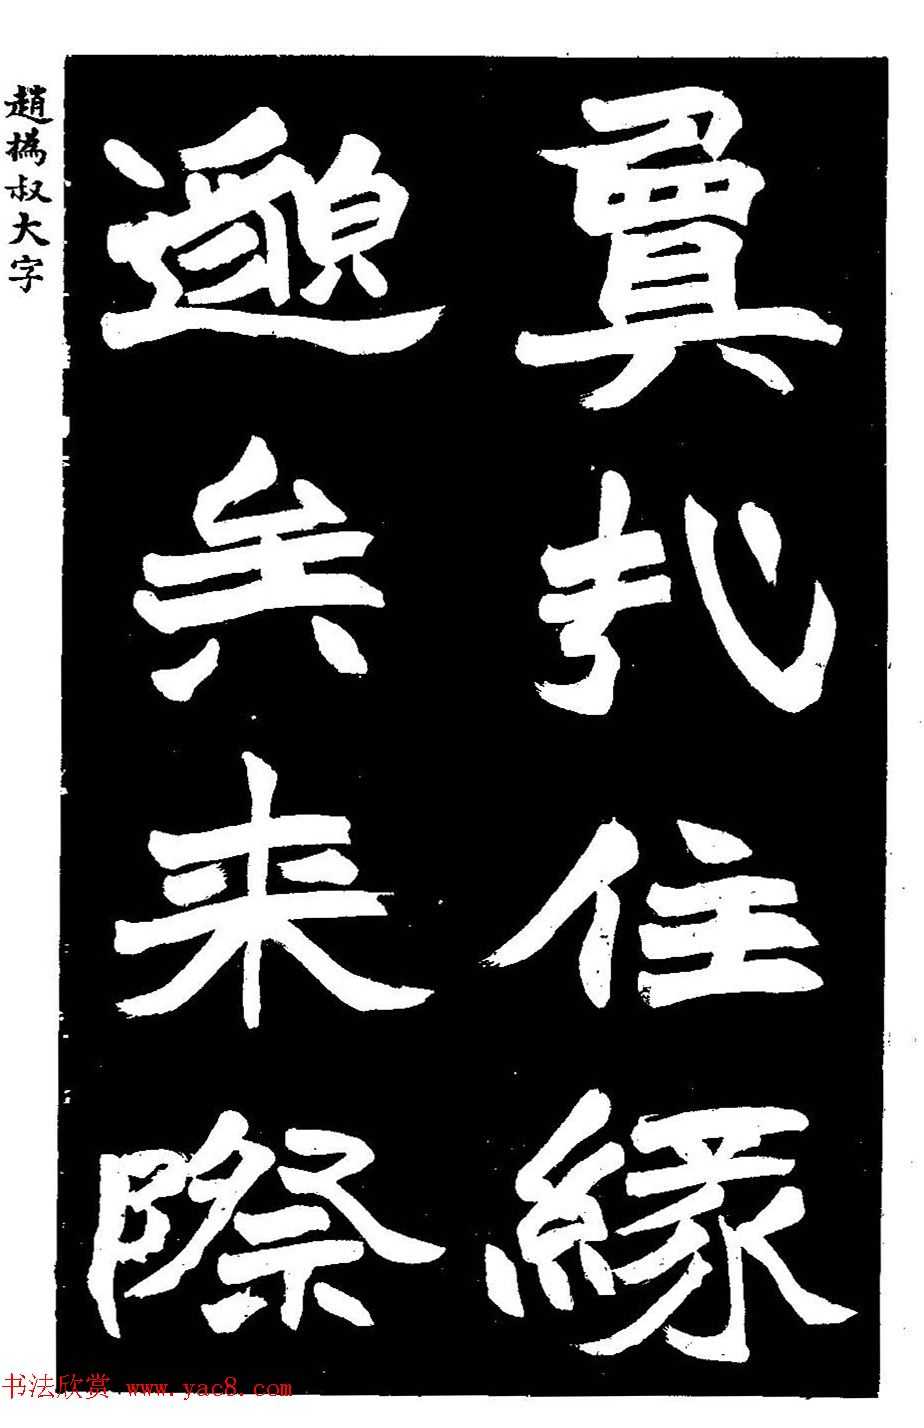 趙撝叔大字
敻哉住緣
邈矣来際
书法欣赏 www.yac8.com